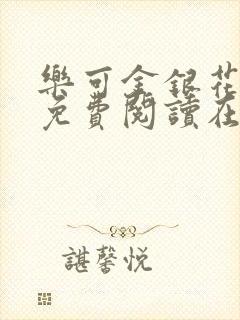 樂可金銀花
免費閱讀在
諶馨悅